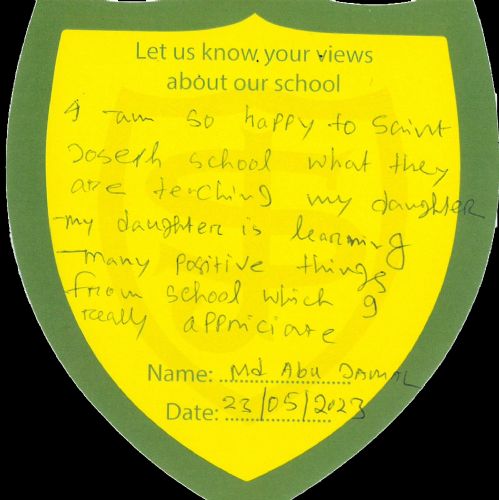 Let us know your views
about our school
I am so happy to Saint
Joseph school what they
are teching my daughter
my daughter is learning
many positive things
from school which I
really appriciate
Name: Md Abu Jamal
Date: 23/05/2023